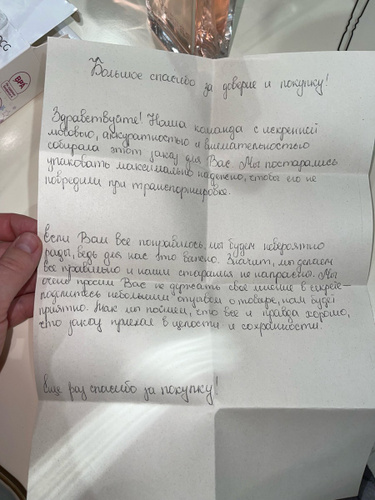 Большое спасибо за доверие и покупку!
Здравствуйте! Наша команда с искренней
любовью, аккуратностью и внимательностью
собирала этот заказ для Вас. Мы постарались
упаковать максимально надёжно, чтобы его не
повредили при транспортировке.
Если Вам все понравилось, мы будем невероятно
рады, ведь для нас это важно. Значит, мы делаем
все правильно и наши старания не напрасны. Мы
очень просим Вас не держать свое мнение в секрете-
поделитесь небольшим отзывом о товаре, нам будет
приятно. Так мы поймем, что все и правда хорошо,
что заказ приехал в целости и сохранности.
Еще раз спасибо за покупку!
BPA